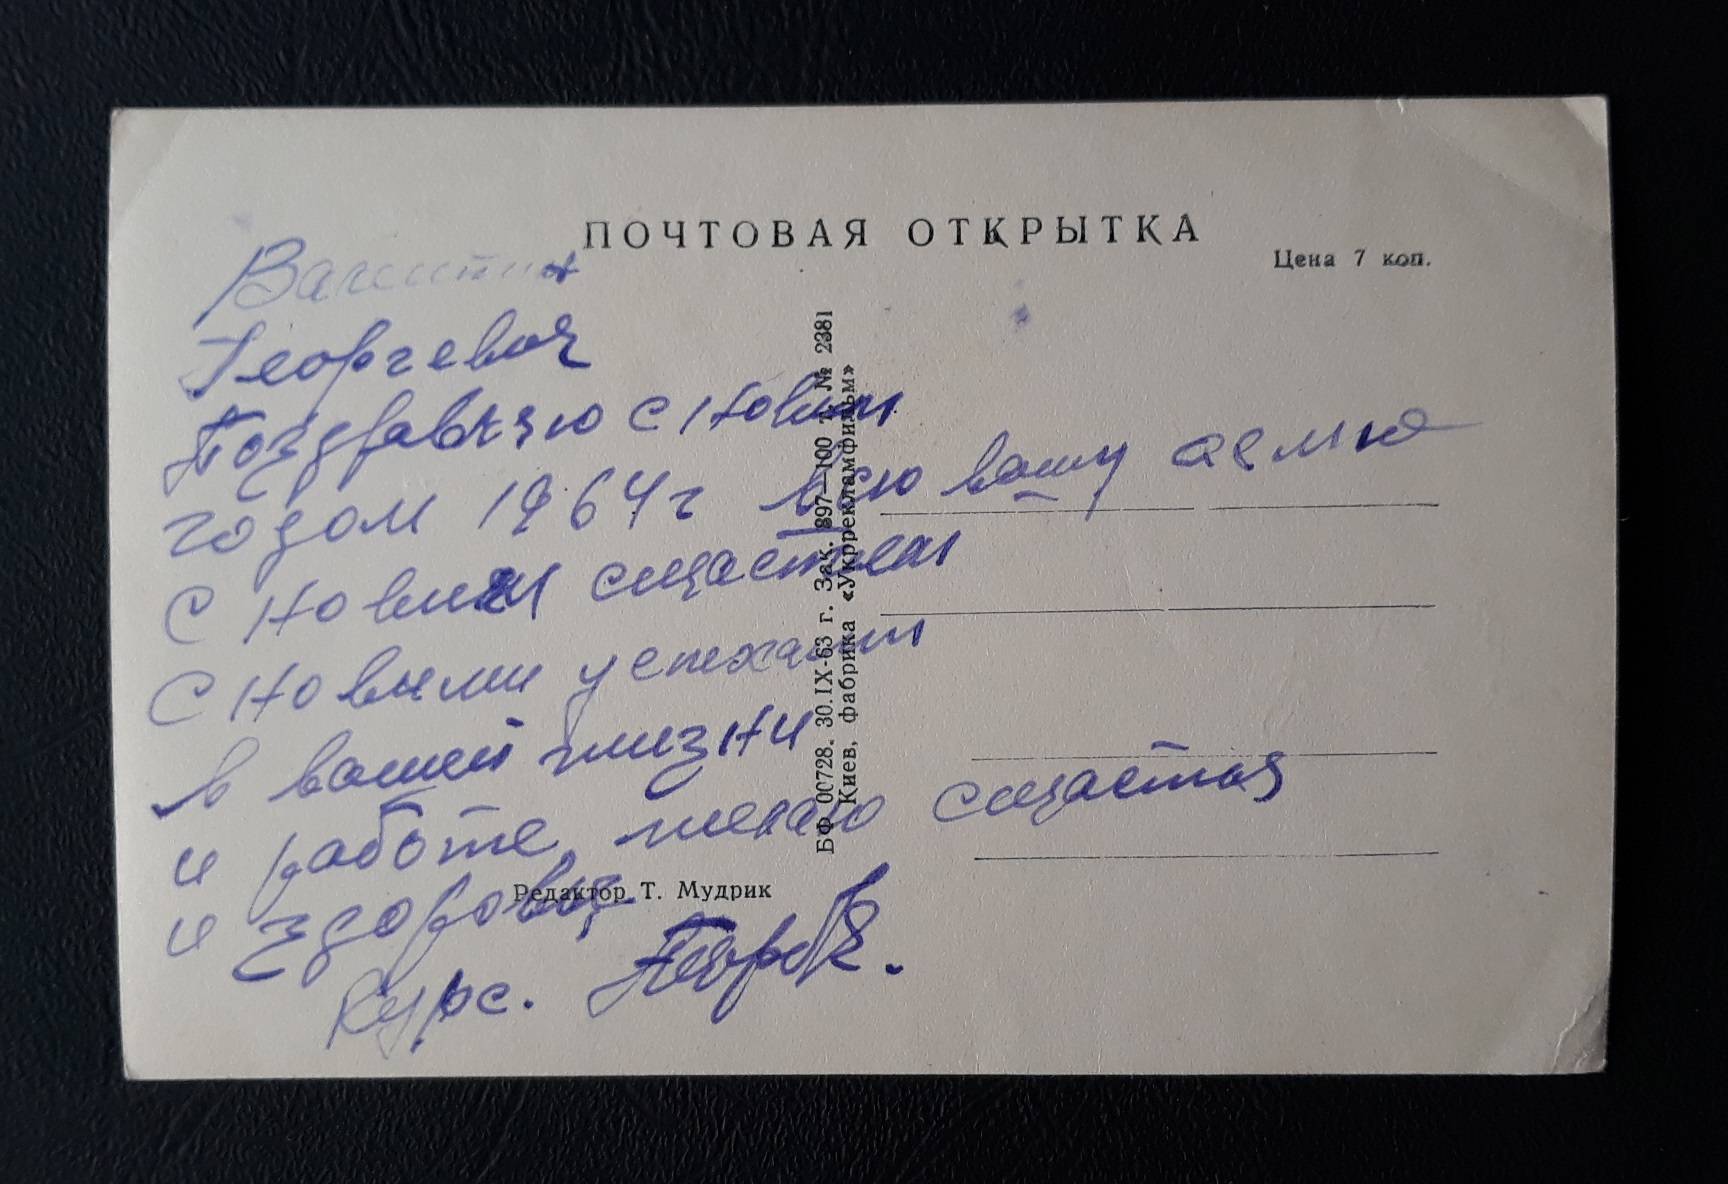 ПОЧТОВАЯ ОТКРЫТКА
Цена 7 коп.
Валентин
Георгевич
Поздравляю с новим
годом 1964 г всю вашу семю
с новим сщастием
с новыми успехами
в вашей жизни
и работе, желаю сщастья
и здоровья
Курс.
БФ 00728. 30.IX-63 г. Зак. 897—100 т. № 2381
Киев, фабрика «Укррекламфильм»
Редактор Т. Мудрик